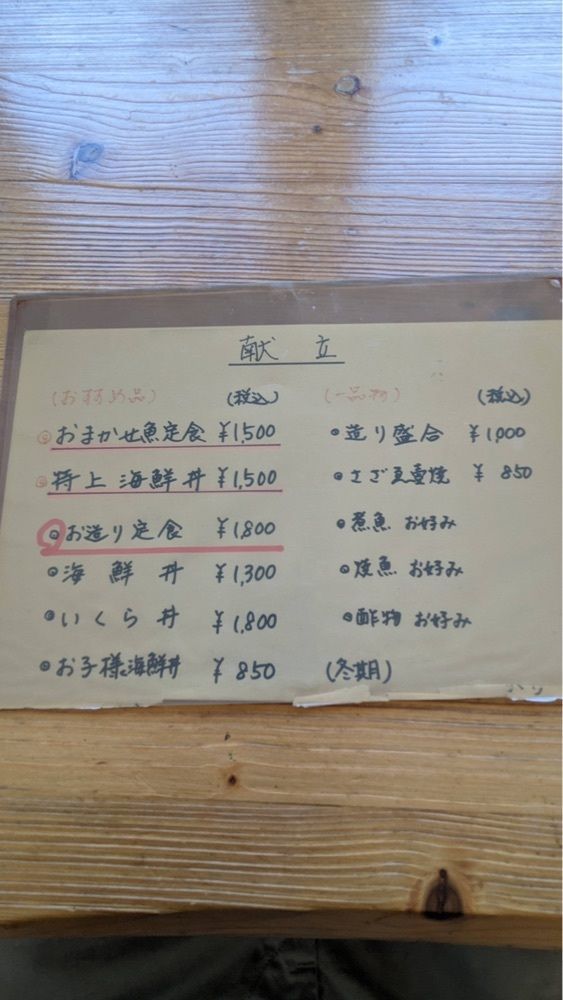 献立
(おすすめ品) (税込)
おまかせ魚定食 ¥1,500
特上海鮮丼 ¥1,500
お造り定食 ¥1,800
海鮮丼 ¥1,300
いくら丼 ¥1,800
お子様海鮮丼 ¥850
(一品物) (税込)
造り盛合 ¥1,000
さざえ壷焼 ¥850
煮魚 お好み
焼魚 お好み
酢物 お好み
(冬期)